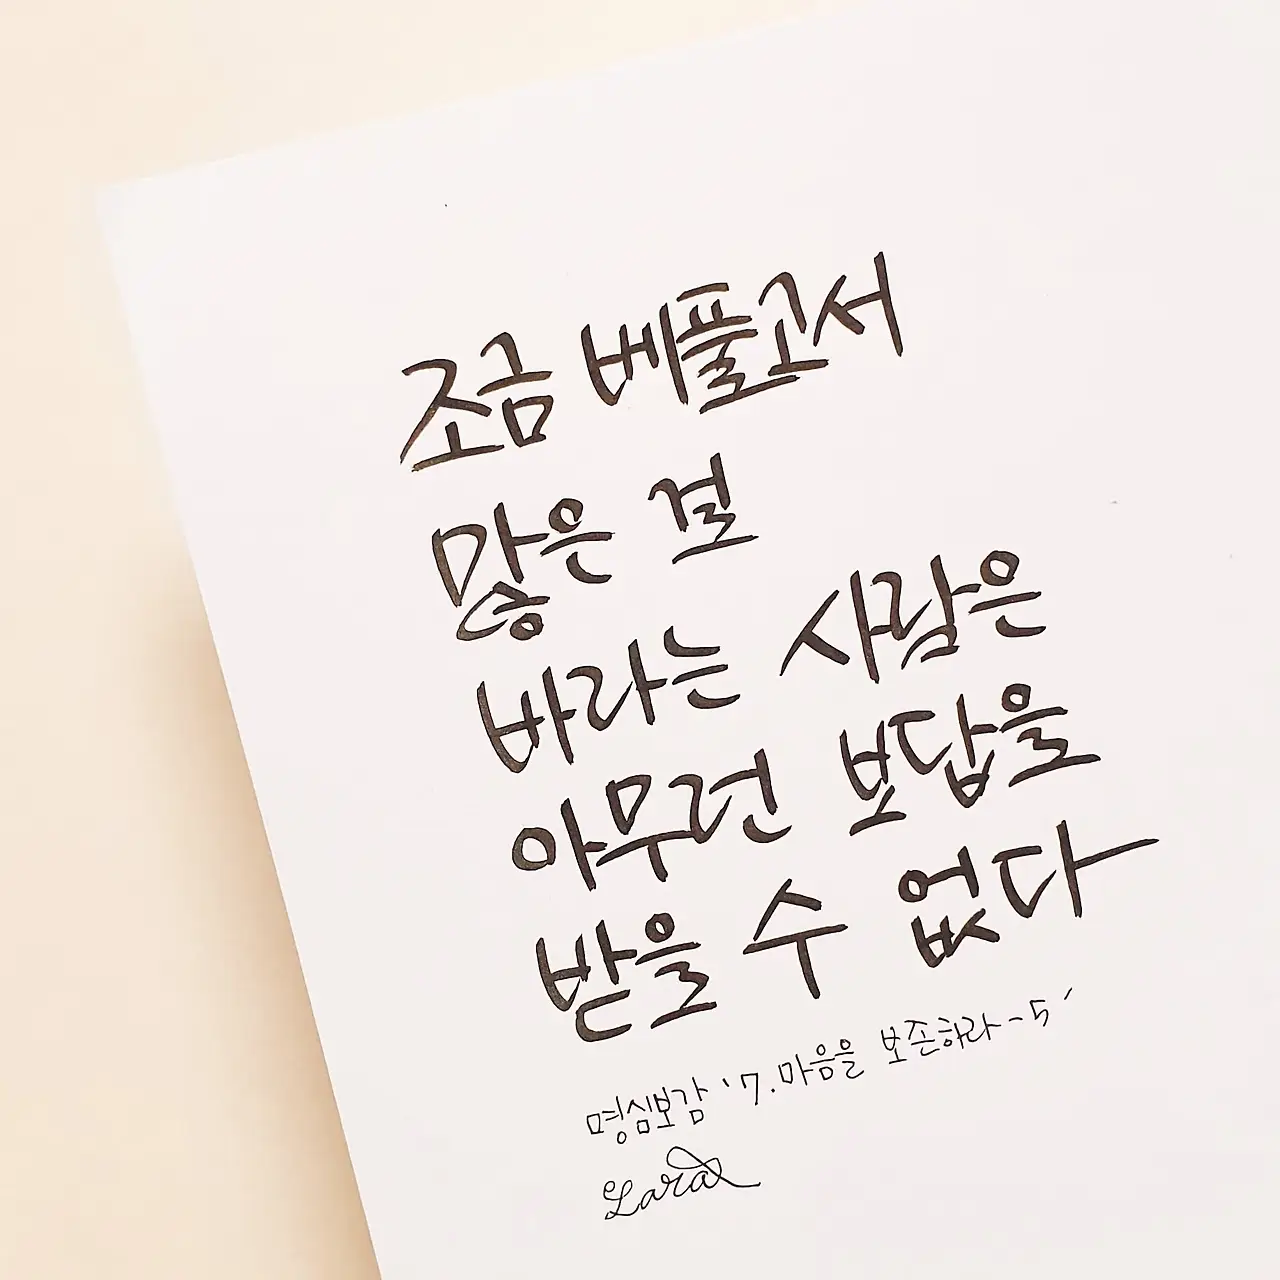 조금 베풀고서
많은 걸
바라는 사람은
아무런 보답을
받을 수 없다
명심보감 '7.마음을 보존하라-5'
Lara